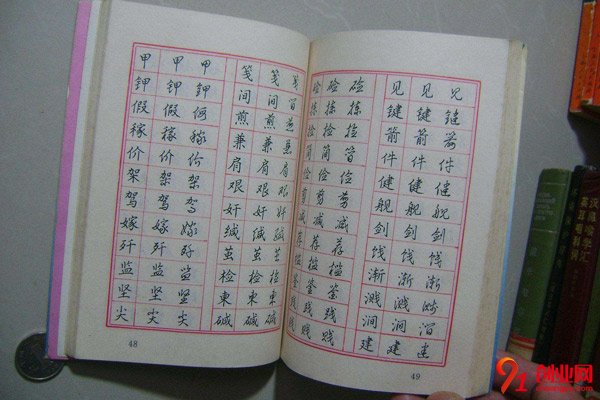 甲 甲 甲
钾 钾 钾
假 假 假
稼 稼 稼
价 价 价
架 架 架
驾 驾 驾
嫁 嫁 嫁
歼 歼 歼
监 监 监
坚 坚 坚
尖 尖 尖
笺 笺 笺
间 间 间
煎 煎 煎
兼 兼 兼
肩 肩 肩
艰 艰 艰
奸 奸 奸
缄 缄 缄
茧 茧 茧
检 检 检
柬 柬 柬
碱 碱 碱
48
硷 硷 硷
拣 拣 拣
捡 捡 捡
简 简 简
俭 俭 俭
剪 剪 剪
减 减 减
荐 荐 荐
槛 槛 槛
鉴 鉴 鉴
践 践 践
贱 贱 贱
见 见 见
键 键 键
箭 箭 箭
件 件 件
健 健 健
舰 舰 舰
剑 剑 剑
饯 饯 饯
渐 渐 渐
溅 溅 溅
涧 涧 涧
建 建 建
49
91创业网